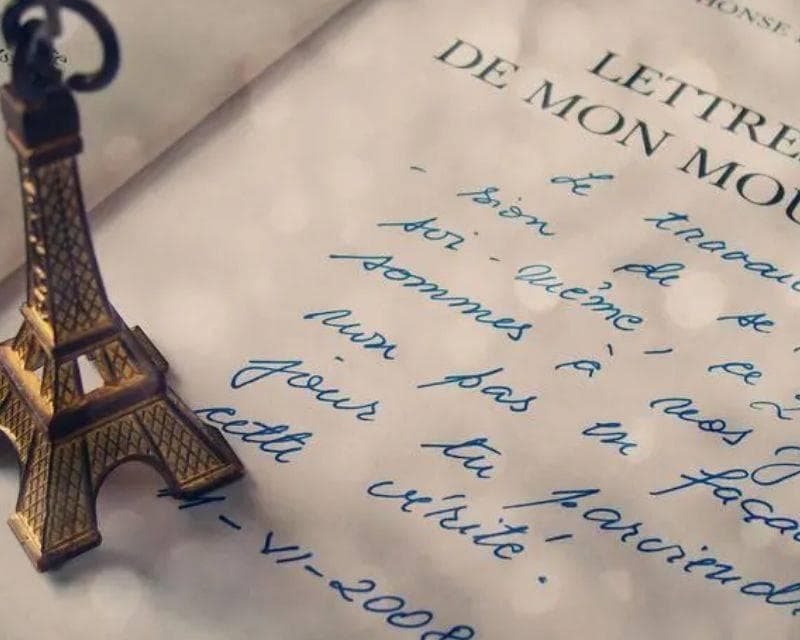 HONSE
LETTRE
DE MON MOU
Le travai
- sion de se
soi-même, ce
sommes à nos
non pas en faça
jour tu parviend
cette vérité.
-VI-2008